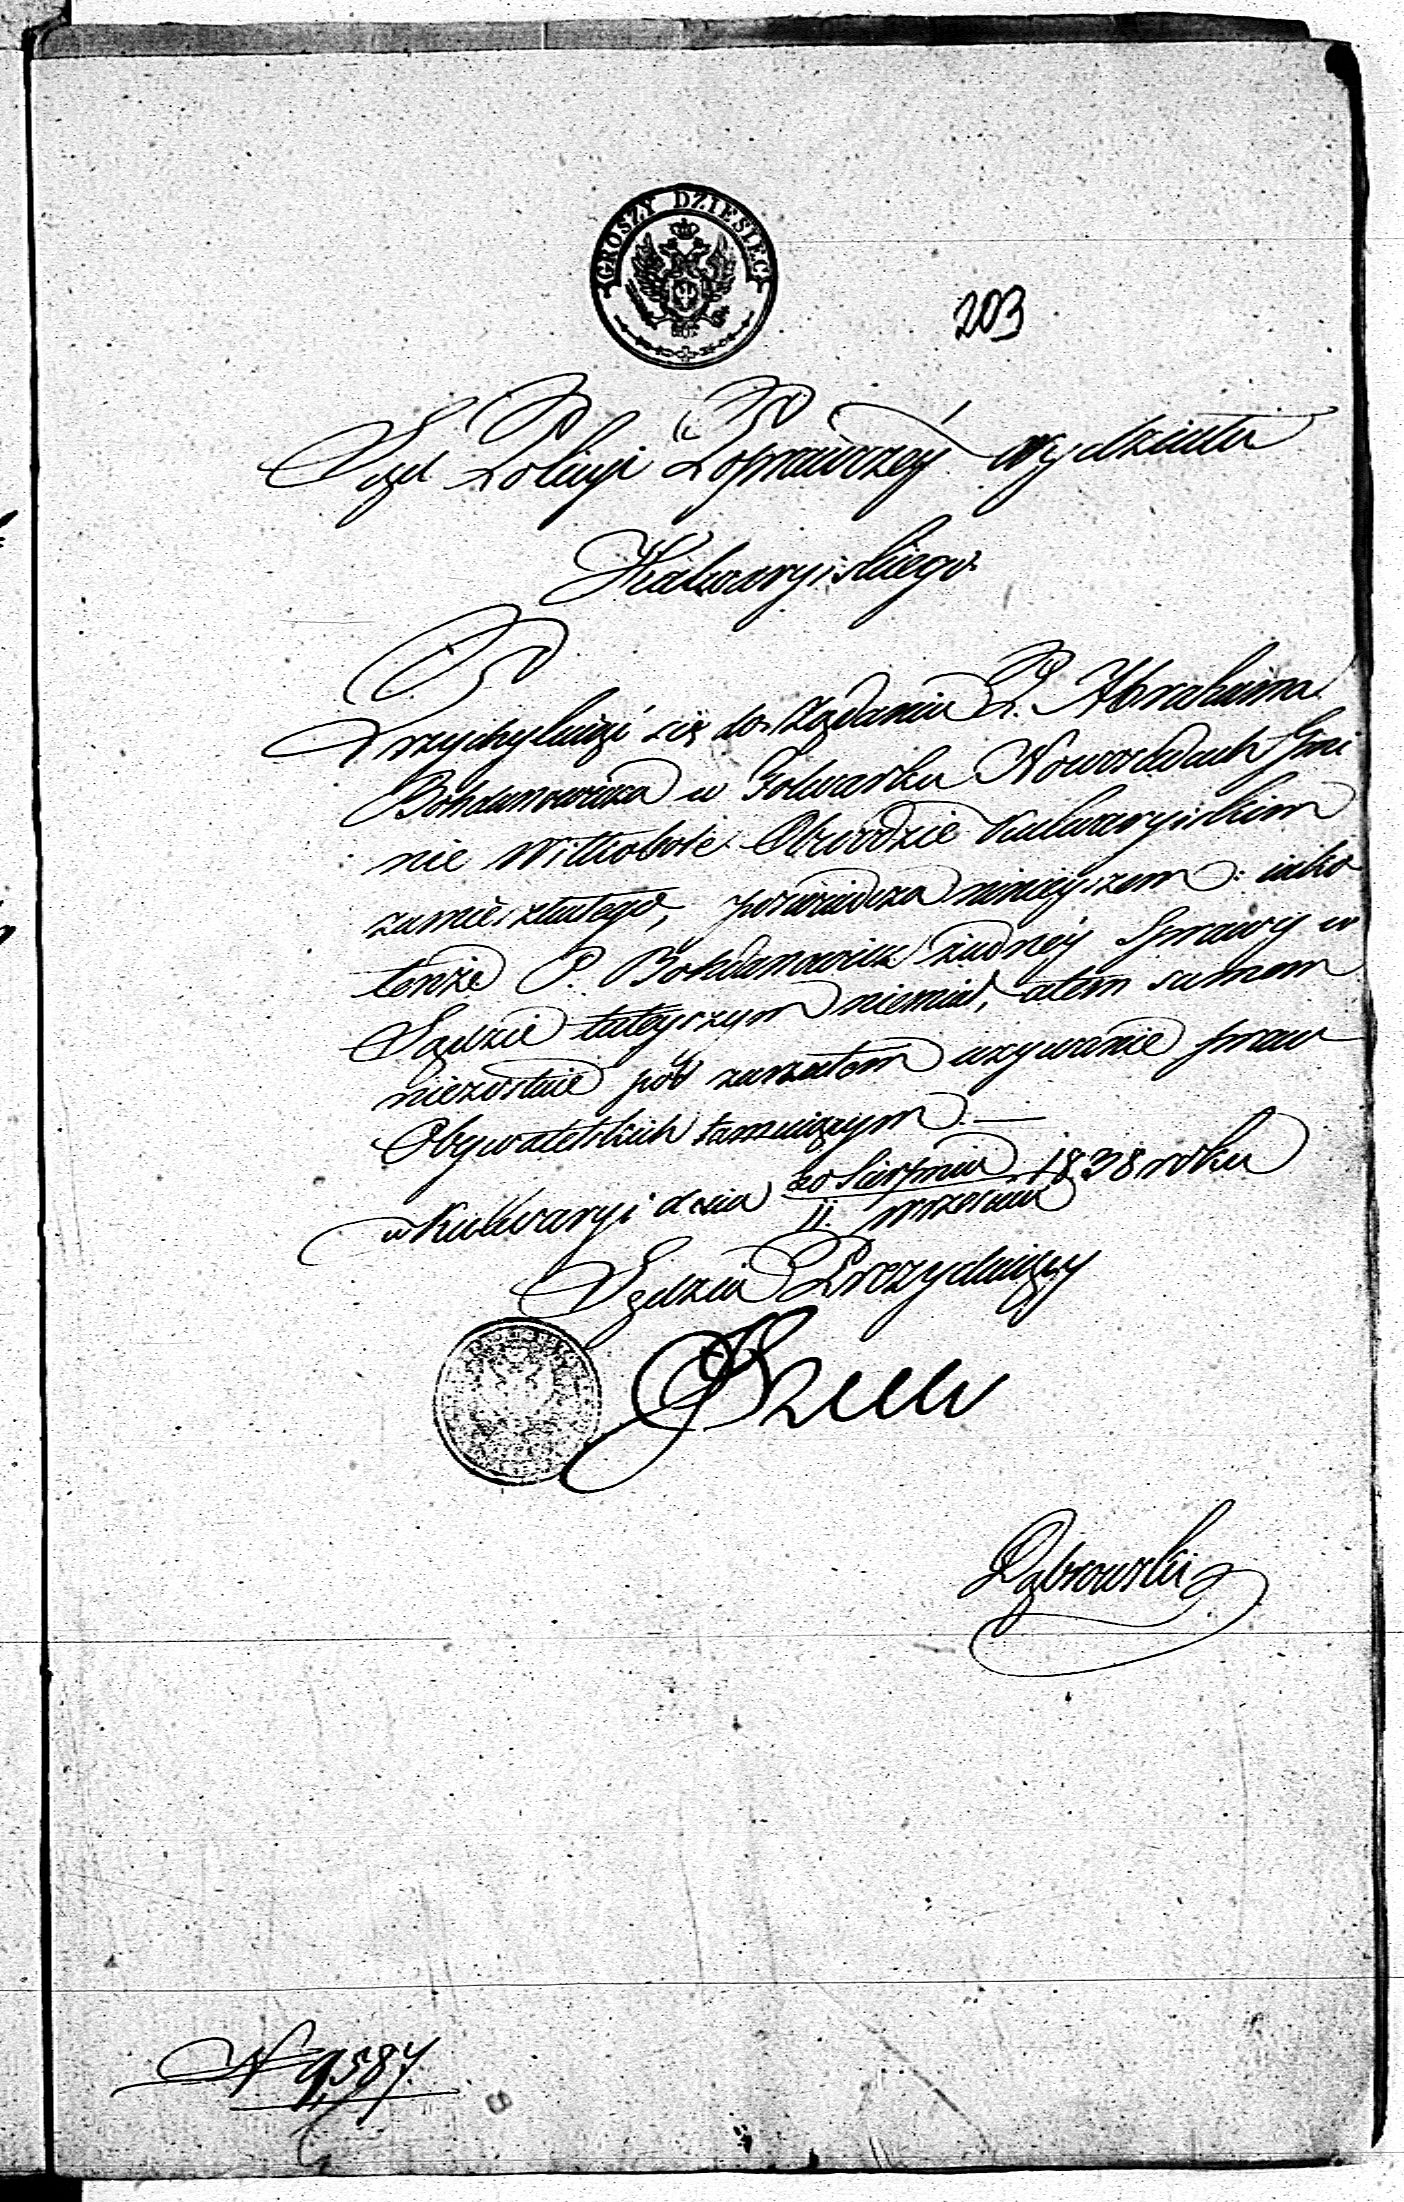 GROSZY DZIESIEC
203
Sąd Policyi Poprawczéy wydziału
Kalwaryiskiego
Przychylaiąć się do Żądania P. Abrahama
Bohdanowicza w Folwarku Nowosadach Gmi
nie Obwodzie Kalwaryiskim
zamieszkałego, poświadcza ninieyszem: iako
tenże P. Bohdanowicz żadnéy Sprawy w
Sądzie tuteyszym niemiał, atem samem
niezostaie pód zarzutem używanie praw
Obywatelskich tamuiącym. —
w Kalwaryi dnia 20 Sierpnia 1838 roku
11. Września
Sędzia Prezyduiący
Dąbrowski
N 9,587.